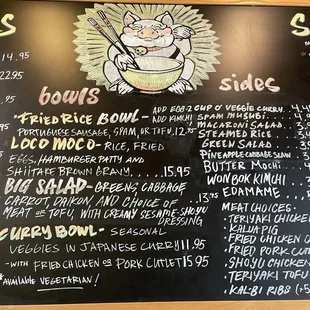 14.95
22.95
bowls
FRIED RICE BOWL - ADD EGG-2
ADD KIMCHI
PORTUGUESE SAUSAGE, SPAM, OR TOFU.12.75
LOCO MOCO - RICE, FRIED
EGGS, HAMBURGER PATTY AND
SHIITAKE BROWN GRAVY.....15.95
BIG SALAD - GREENS, CABBAGE
CARROT, DAIKON, AND CHOICE OF
MEAT OR TOFU, WITH CREAMY SESAME-SHOYU DRESSING
13.95
CURRY BOWL - SEASONAL
VEGGIES IN JAPANESE CURRY 11.95
- WITH FRIED CHICKEN OR PORK CUTLET 15.95
*AVAILABLE VEGETARIAN!
sides
CUP O' VEGGIE CURRY
SPAM MUSUBI
MACARONI SALAD
STEAMED RICE
GREEN SALAD
PINEAPPLE CABBAGE SLAW
BUTTER MOCHI
WON BOK KIMCHI
EDAMAME
MEAT CHOICES:
- TERIYAKI CHICKEN
- KALUA PIG
- FRIED CHICKEN
- FRIED PORK
- SHOYU CHICKEN
- TERIYAKI TOFU
- KALBI RIBS